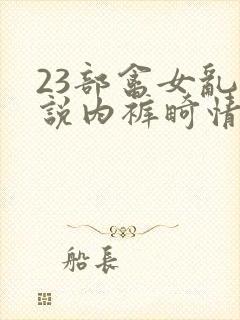 23部畜女亂
説内褲畸情
船長